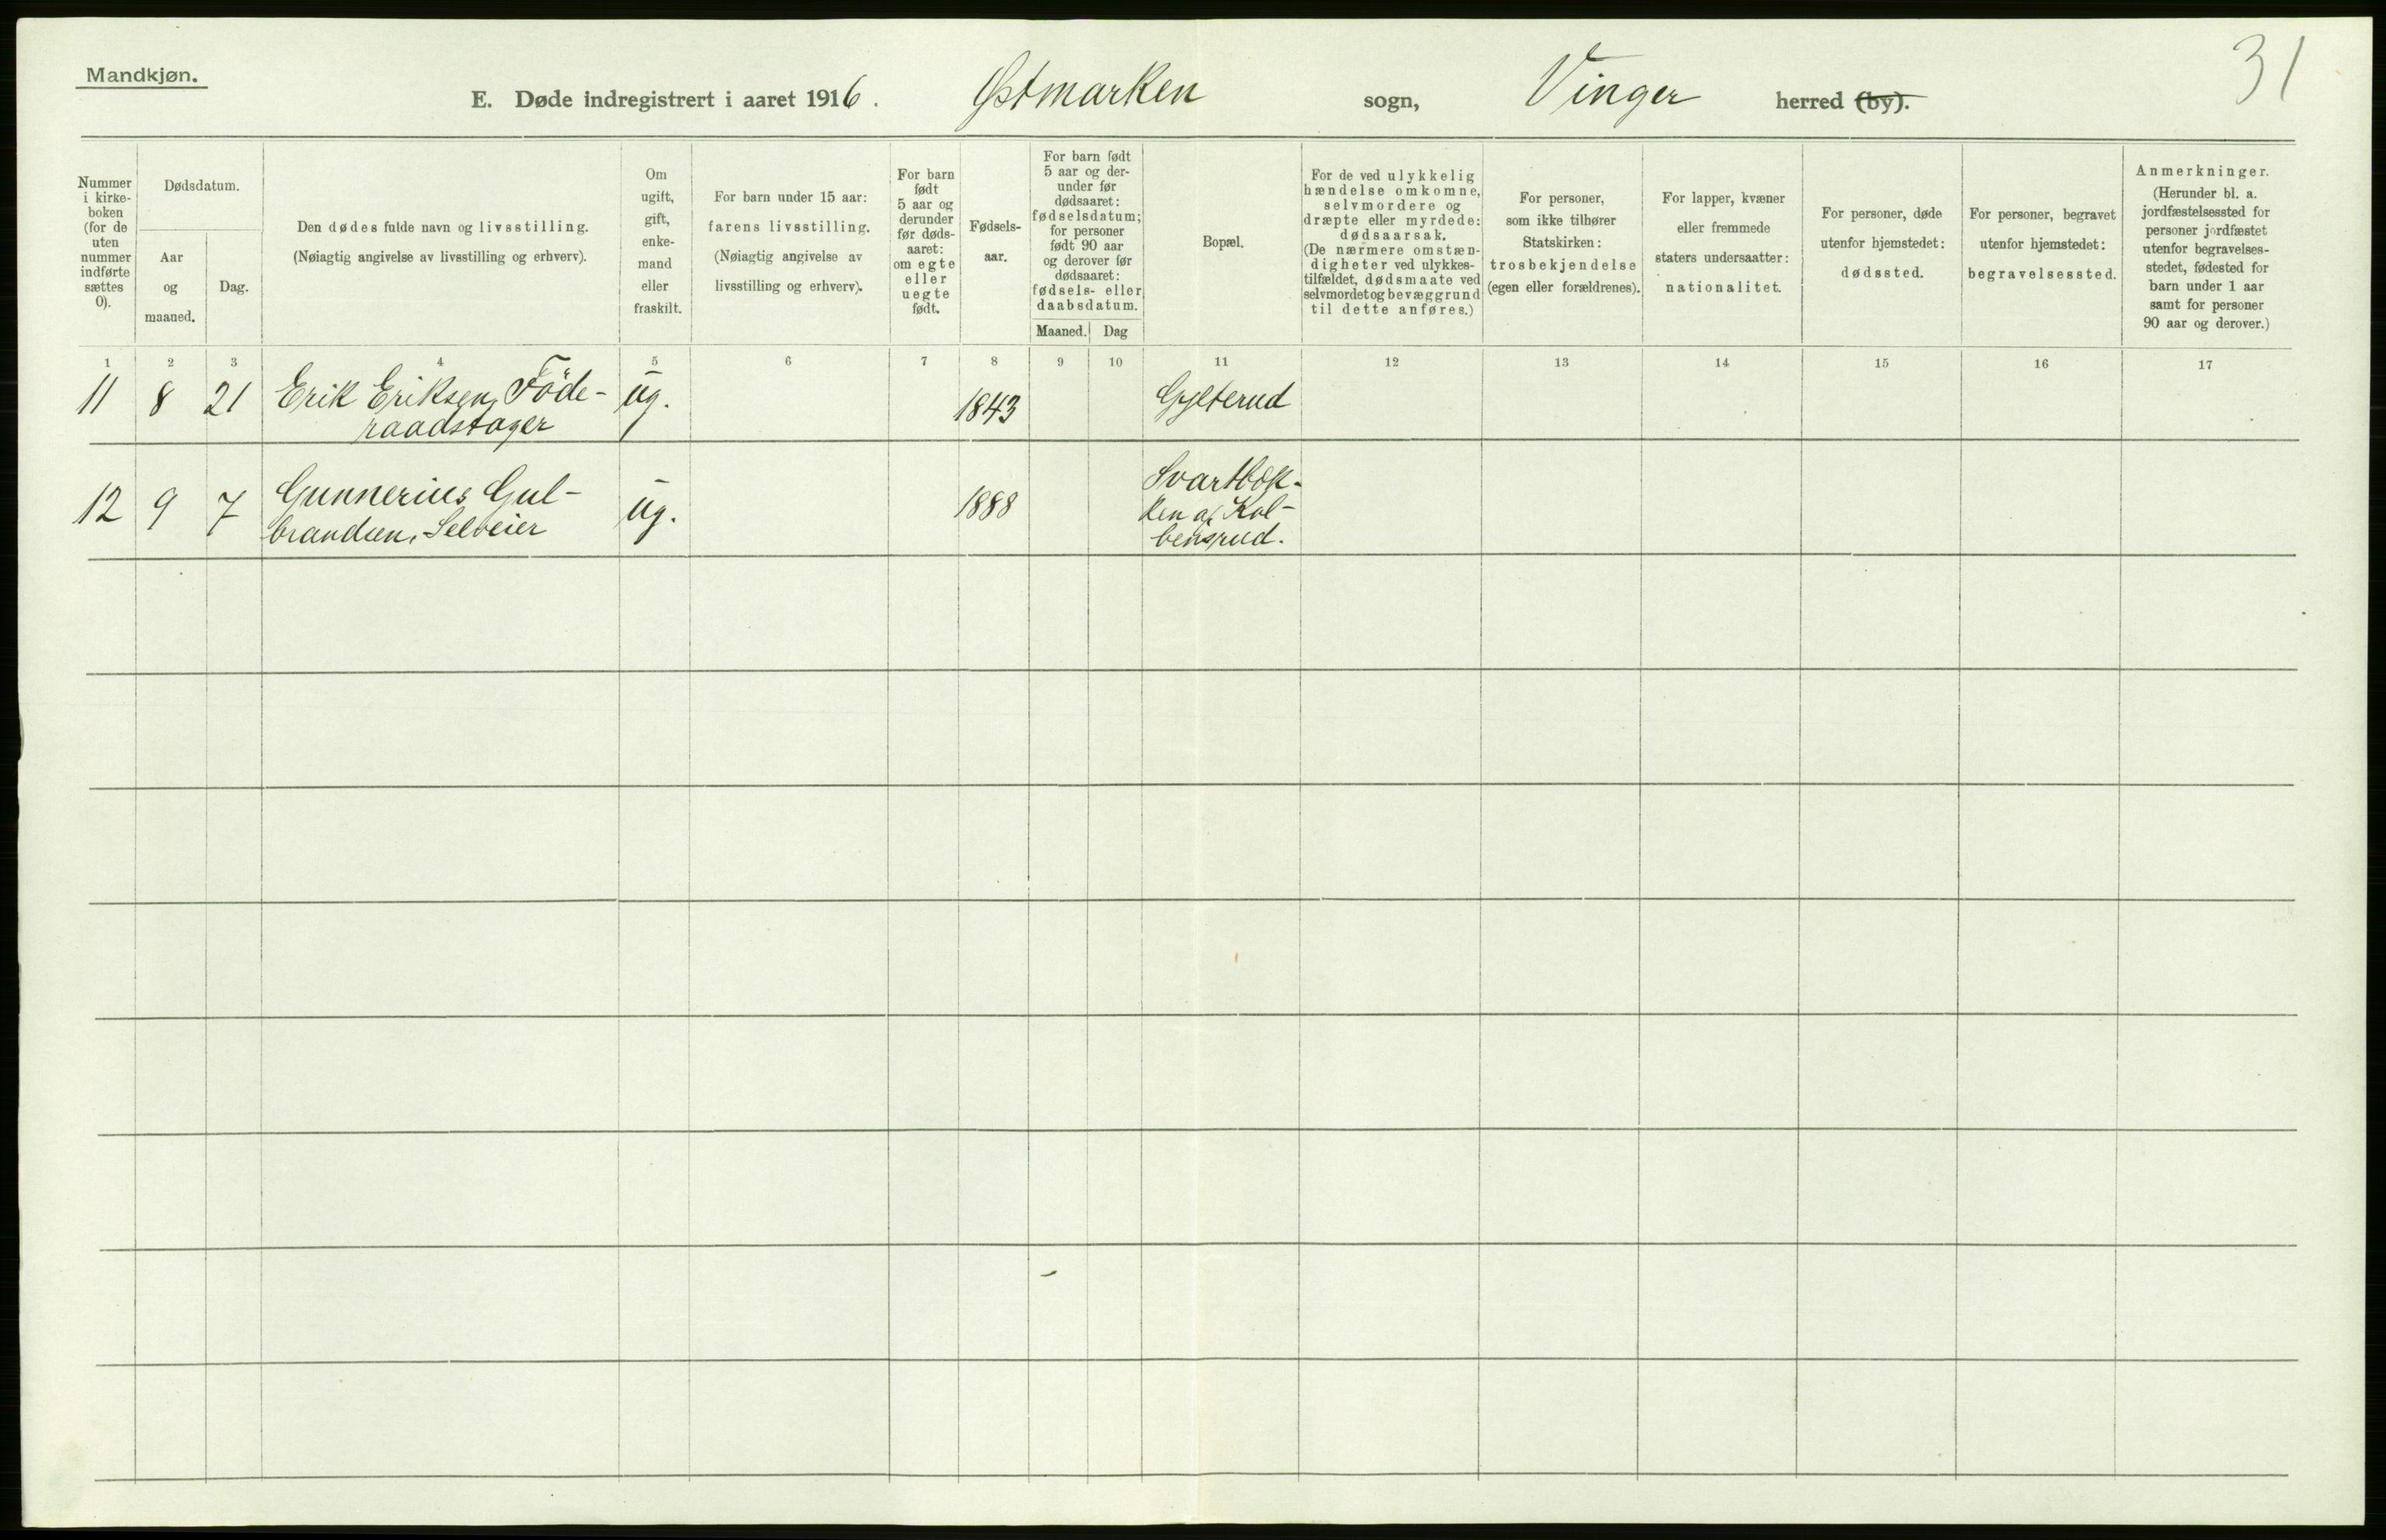 Mandkjøn.
31
E. Døde indregistrert i aaret 1916. Østmarken sogn, Vinger herred (by).
Nummer
i kirke-
boken
(for de
uten
nummer
indførte
sættes
0).
Dødsdatum.
Aar
og
maaned.
Dag.
Den dødes fulde navn og livsstilling.
(Nøiagtig angivelse av livsstilling og erhverv).
Om
ugift,
gift,
enke-
mand
eller
fraskilt.
For barn under 15 aar:
farens livsstilling.
(Nøiagtig angivelse av
livsstilling og erhverv).
For barn
født
5 aar og
derunder
før døds-
aaret:
om egte
eller
uegte
født.
Fødsels-
aar.
For barn født
5 aar og der-
under før
dødsaaret:
fødselsdatum;
for personer
født 90 aar
og derover før
dødsaaret:
fødsels- eller
daabsdatum.
Maaned. Dag
Bopæl.
For de ved ulykkelig
hændelse omkomne,
selvmordere og
dræpte eller myrdede:
dødsaarsak.
(De nærmere omstæn-
digheter ved ulykkes-
tilfældet, dødsmaate ved
selvmordet og bevæggrund
til dette anføres.)
For personer,
som ikke tilhører
Statskirken:
trosbekjendelse
(egen eller forældrenes).
For lapper, kvæner
eller fremmede
staters undersaatter:
nationalitet.
For personer, døde
utenfor hjemstedet:
dødssted.
For personer, begravet
utenfor hjemstedet:
begravelsessted.
Anmerkninger.
(Herunder bl. a.
jordfæstelsessted for
personer jordfæstet
utenfor begravelses-
stedet, fødested for
barn under 1 aar
samt for personer
90 aar og derover.)
1 2 3 4 5 6 7 8 9 10 11 12 13 14 15 16 17
11 8 21 Erik Eriksen, Föde- ug. 1843 Gylterud
raadstager
12 9 7 Gunnerius Gul- ug. 1888
brandsen, Selveier
rud.